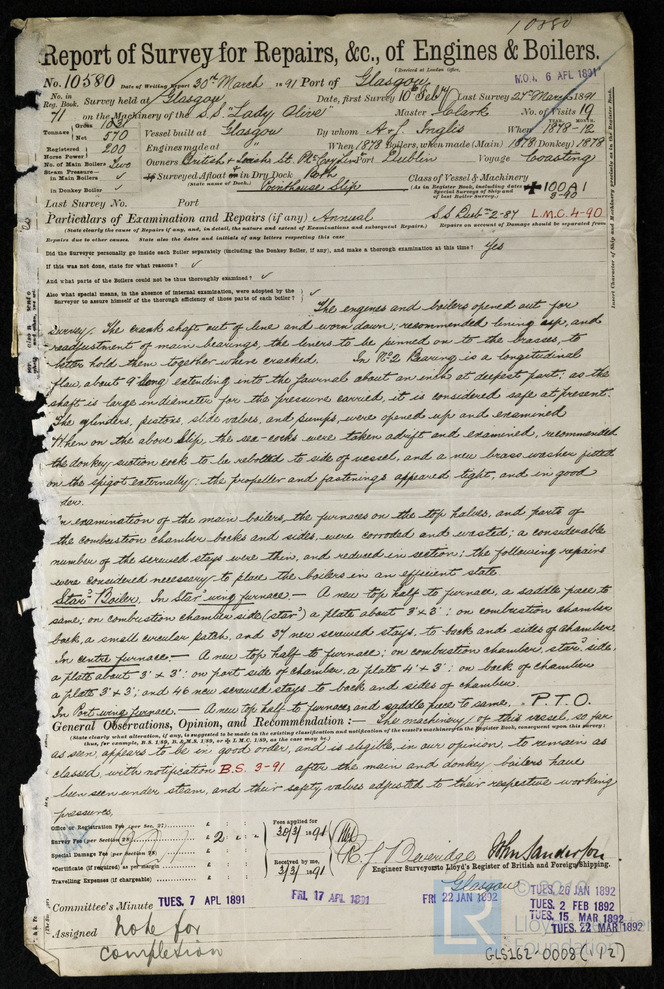 10580
Report of Survey for Repairs, &c., of Engines & Boilers.
(Received at London Office,
No. 10580 Date of Writing Report 30th March 1891 Port of Glasgow
MON. 6 APL 1891
No. in Reg. Book. Survey held at Glasgow Date, first Survey 10th Feby Last Survey 27th Mar 1891
71 on the Machinery of the S.S. "Lady Olive" Master Clark No. of Visits 19
Tonnage Gross 1031 Net 570 Vessel built at Glasgow By whom A & J. Inglis When 1878-12
Registered Horse Power 200 Engines made at " When 1878 Boilers, when made (Main) 1878 (Donkey) 1878
No. of Main Boilers Two Owners British & Irish St. Pt. Compy Port Dublin Voyage Coasting
Steam Pressure in Main Boilers Surveyed Afloat or in Dry Dock Both Class of Vessel & Machinery
in Donkey Boiler ✓ (State name of Dock.) Pointhouse Slip (As in Register Book, including dates of Special Surveys of Ship and of last Boiler survey.) ✠100A1 3-90
Last Survey No. Port
Particulars of Examination and Repairs (if any) Annual S.S. Dub. 2-87 L.M.C. 4-90
(State clearly the cause of Repairs if any, and, in detail, the nature and extent of Examinations and subsequent Repairs.) Repairs on account of Damage should be separated from
Repairs due to other causes. State also the dates and initials of any letters respecting this case
Did the Surveyor personally go inside each Boiler separately (including the Donkey Boiler, if any), and make a thorough examination at this time? Yes
If this was not done, state for what reasons? ✓
And what parts of the Boilers could not be thoroughly examined? ✓
Also what special means, in the absence of internal examination, were adopted by the Surveyor to assure himself of the thorough efficiency of those parts of each boiler? ✓
The engines and boilers opened out for
survey. The crank shaft out of line and worn down, recommended lining up, and
readjustment of main bearings, the liners to be pinned on to the brasses, to
better hold them together where cracked. In No 2 Bearing is a longitudinal
flaw, about 9" long extending into the journal about an inch at deepest part; as the
shaft is large in diameter for the pressure carried, it is considered safe at present.
The cylinders, pistons, slide valves, and pumps, were opened up and examined
When on the above Slip, the sea-cocks were taken adrift and examined, recommended
the donkey suction cock to be rebolted to side of vessel, and a new brass washer fitted
on the spigot externally; the propeller and fastenings appeared tight, and in good
der.
n examination of the main boilers, the furnaces on the top halves, and parts of
the combustion chamber backs and sides, were corroded and wasted; a considerable
number of the screwed stays were thin, and reduced in section; the following repairs
were considered necessary to place the boilers in an efficient state.
Star'd Boiler. In Star'd wing furnace.— A new top half to furnace, a saddle piece to
same; on combustion chamber side (star'd) a plate about 3' x 3'; on combustion chamber
back, a small circular patch, and 37 new screwed stays, to back and sides of chamber.
In centre furnace— A new top half to furnace; on combustion chamber, star'd side,
a plate about 3' x 3'; on port side of chamber, a plate 4' x 3'; on back of chamber
a plate 3' x 3'; and 46 new screwed stays to back and sides of chamber.
In Port wing furnace.— A new top half to furnace, and saddle piece to same. P.T.O.
General Observations, Opinion, and Recommendation:— The machinery of this vessel, so far
(State clearly what alteration, if any, is suggested to be made in the existing classification and notification of the vessel's machinery in the Register Book, consequent upon this survey;
thus, for example, B.S. 1/89, or L.M.S. 1/89, or ✠ L.M.C. 1/89, as the case may be.)
as seen, appears to be in good order, and is eligible, in our opinion, to remain as
classed, with notification B.S. 3-91 after the main and donkey boilers have
been seen under steam, and their safety valves adjusted to their respective working
pressures.
Office or Registration Fee (per Sec. 27) £ : :
Survey Fee (per Section 28) £ 2 : :
Special Damage Fee (per Section 28) £ : :
*Certificate (if required) as per margin £ : :
Travelling Expenses (if chargeable) £ : :
Fees applied for 30/3/1891
Received by me, 31/3/1891
R. J. Beveridge John Sanderson
Engineer Surveyors to Lloyd's Register of British and Foreign Shipping.
Glasgow
Committee's Minute TUES. 7 APL 1891 FRI. 17 APL 1891 FRI 22 JAN 1892
TUES. 26 JAN 1892
TUES. 2 FEB 1892
TUES. 15 MAR 1892
TUES. 22 MAR 1892
Assigned note for
completion
LR Lloyd's Register
Foundation
GLS162-0008 (1/2)
Insert Character of Ship and Machinery precisely as in the Register Book.